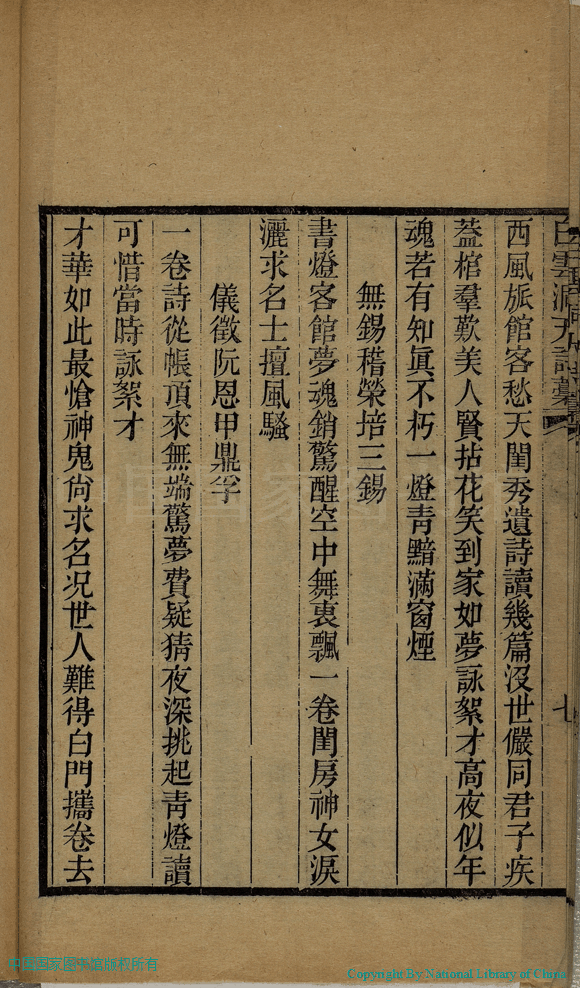 七
西風旅館客愁天閨秀遺詩讀幾篇沒世儼同君子疾
葢棺羣歎美人賢拈花笑到家如夢詠絮才高夜似年
魂若有知眞不朽一燈靑黯滿窗煙
無錫稽榮培三錫
書燈客館夢魂銷驚醒空中舞裏飄一卷閨房神女淚
灑求名士擅風騷
儀徵阮恩甲鼎孚
一卷詩從帳頂來無端驚夢費疑猜夜深挑起靑燈讀
可惜當時詠絮才
才華如此最愴神鬼尙求名况世人難得白門攜卷去
中国国家图书馆版权所有
Copyright By National Library of China